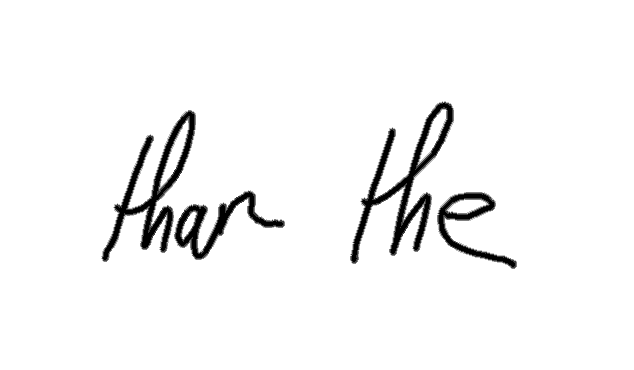 than the